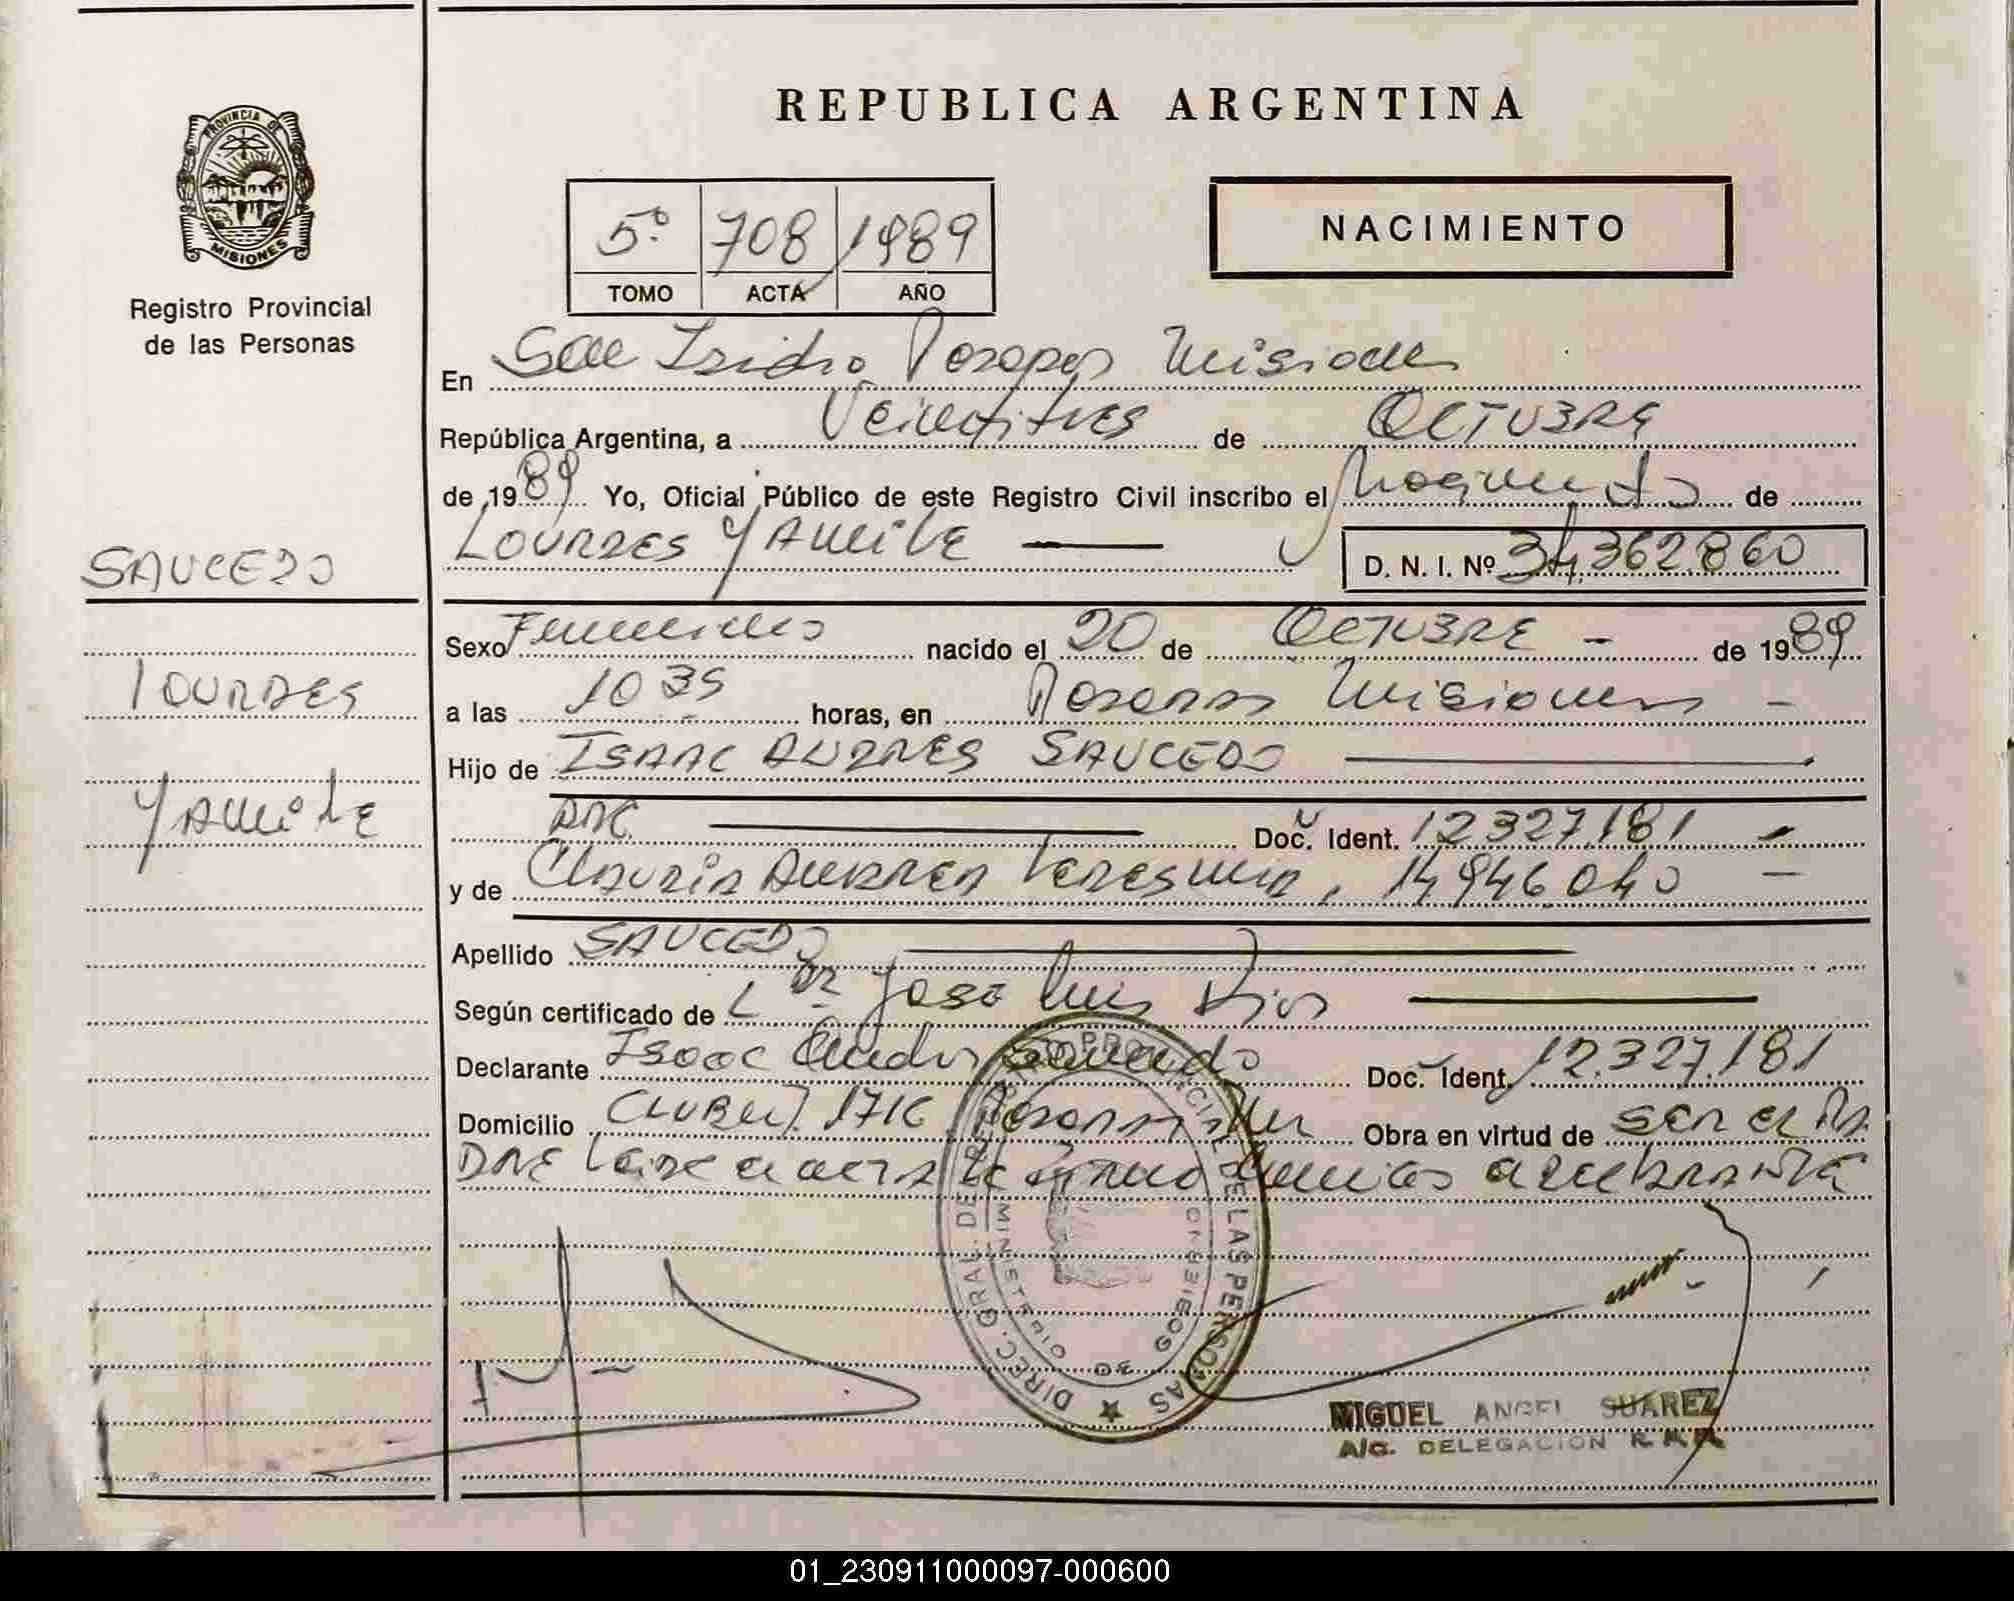 REPUBLICA ARGENTINA
PROVINCIA DE MISIONES
Registro Provincial
de las Personas
5º 708 1989
TOMO ACTA AÑO
NACIMIENTO
En San Isidro Posadas Misiones
República Argentina, a Veintitres de OCTUBRE
de 1989 Yo, Oficial Público de este Registro Civil inscribo el Nacimiento de
LOURDES YAMILE
D. N. I. Nº 34.362.860
SAUCEDO
LOURDES
YAMILE
Sexo Femenino nacido el 20 de OCTUBRE - de 1989
a las 10 35 horas, en Posadas Misiones -
Hijo de ISAAC ANDRES SAUCEDO
ARG. Doc. Ident. 12.327.181 -
y de CLAUDIA ANDREA, 14.946.040 -
Apellido SAUCEDO
Según certificado de José Luis Rios
Declarante Isaac Andres Saucedo Doc. Ident. 12.327.181
Domicilio 1716 Posadas Mnes Obra en virtud de SER EL PA
DRE
DIREC. GRAL. DE REGISTRO PROVINCIAL DE LAS PERSONAS
MINISTERIO DE GOBIERNO
MIGUEL ANGEL SUAREZ
A/C. DELEGACION R.P.P.
01_230911000097-000600